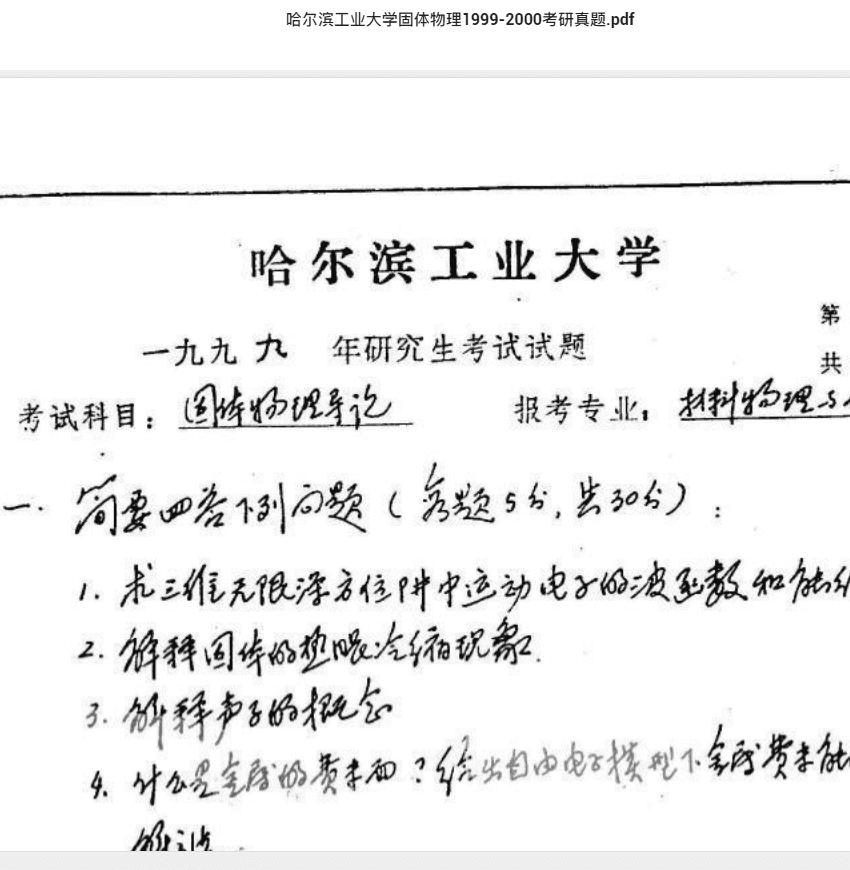 哈尔滨工业大学固体物理1999-2000考研真题.pdf
哈尔滨工业大学
第
一九九九 年研究生考试试题
共
考试科目：固体物理导论 报考专业：材料物理与
一. 简要回答下列问题（每题5分，共30分）：
1. 求三维无限深方位阱中运动电子的波函数和能
2. 解释固体的热胀冷缩现象.
3. 解释声子的概念
4. 什么是金属的费米面？给出自由电子模型下金属费米能